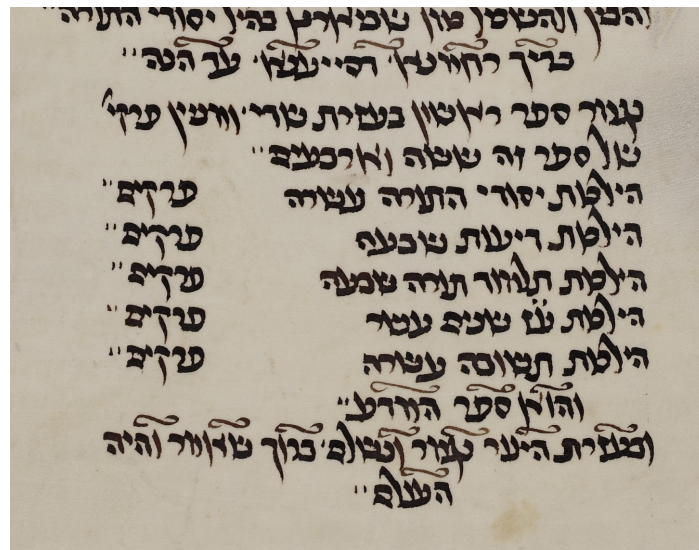 להבין ולהשיג כמו שביארנו בהל יסודי התורה
בריך רחמנא דסייענא עד הכה
נגמר ספר ראשון בעזרת שדי ומנין פרקי
של ספר זה ששה וארבעים
הילכות יסודי התורה עשרה פרקים
הילכות דיעות שבעה פרקים
הילכות תלמוד תורה שבעה פרקים
הילכות ע״ז שנים עשר פרקים
הילכות תשובה עשרה פרקים
והוא ספר המדע
ובעזרת נגמר ונשלם ברוך שאמר והיה
העולם